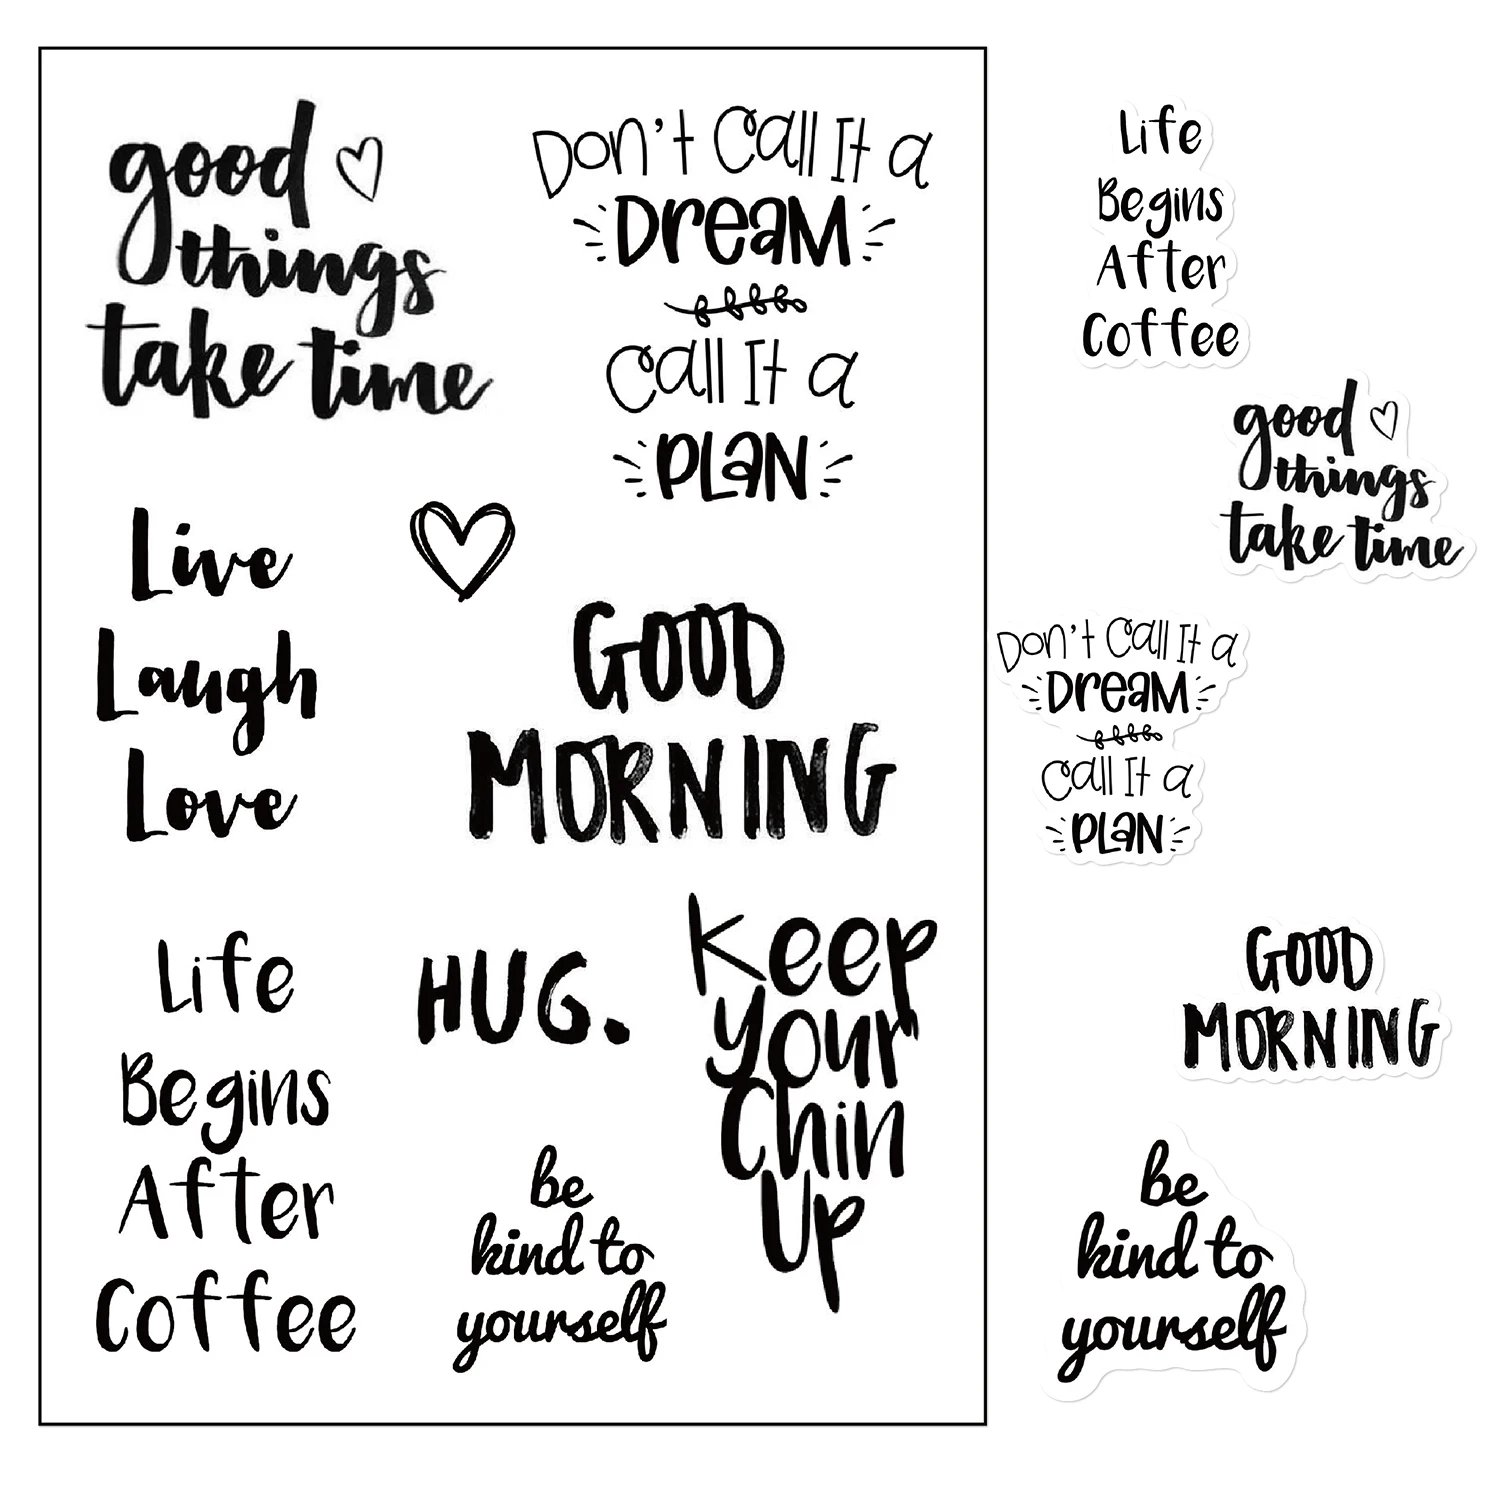 good
things
take time
Don't Call It a
DreaM
Call It a
PLaN
Live
Laugh
Love
GOOD
MORNING
Life
Begins
After
Coffee
HUG.
Keep
your
Chin
Up
be
kind to
yourself
Life
Begins
After
Coffee
good
things
take time
Don't Call It a
DreaM
Call It a
PLaN
GOOD
MORNING
be
kind to
yourself